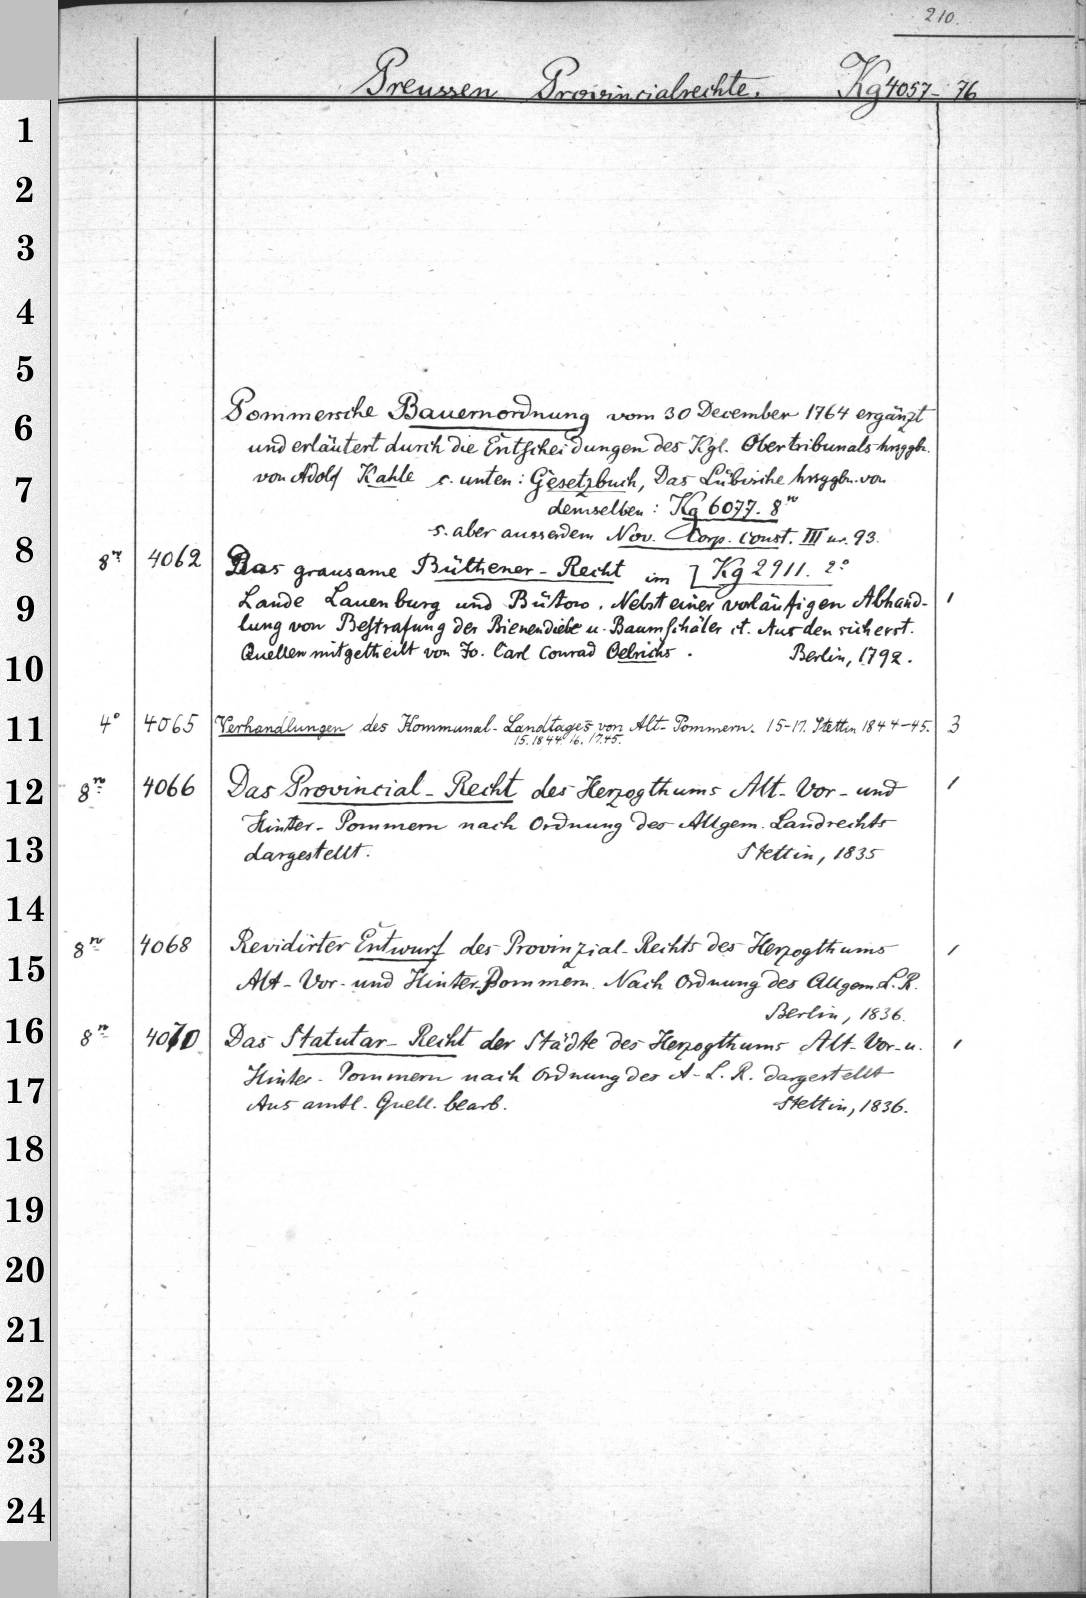 210.
Preussen Provincialrechte. Kg 4057-76
1
2
3
4
5
6
7
8
9
10
11
12
13
14
15
16
17
18
19
20
21
22
23
24
Pommersche Bauernordnung vom 30 December 1764 ergänzt
und erläutert durch die Entscheidungen des Kgl. Obertribunals hrsggbn.
von Adolf Kahle s. unten: Gesetzbuch, Das Lübische hrsggbn. von
demselben: Kg 6077. 8no
s. aber ausserdem Nov. Corp. Const. III nr. 93.
8no 4062 Das grausame Büthener-Recht im ] Kg 2911. 2°
Lande Lauenburg und Bütow. Nebst einer vorläufigen Abhand- 1
lung von Bestrafung der Bienendiebe u. Baumschäler it. Aus den sicherst.
Quellen mitgetheilt von Jo. Carl Conrad Oelrichs. Berlin, 1792.
4° 4065 Verhandlungen des Kommunal-Landtages von Alt-Pommern. 15-17. Stettin 1844-45. 3
15. 1844. 16. 17. 45.
8no 4066 Das Provincial-Recht des Herzogthums Alt-Vor-und 1
Hinter-Pommern nach Ordnung des Allgem. Landrechts
dargestellt. Stettin, 1835
8no 4068 Revidirter Entwurf des Provinzial-Rechts des Herzogthums 1
Alt-Vor-und Hinter-Pommern. Nach Ordnung des Allgem. L. R.
Berlin, 1836.
8no 4070 Das Statutar-Recht der Städte des Herzogthums Alt-Vor-u. 1
Hinter-Pommern nach Ordnung des A-L.R. dargestellt
Aus amtl. Quell. bearb. Stettin, 1836.